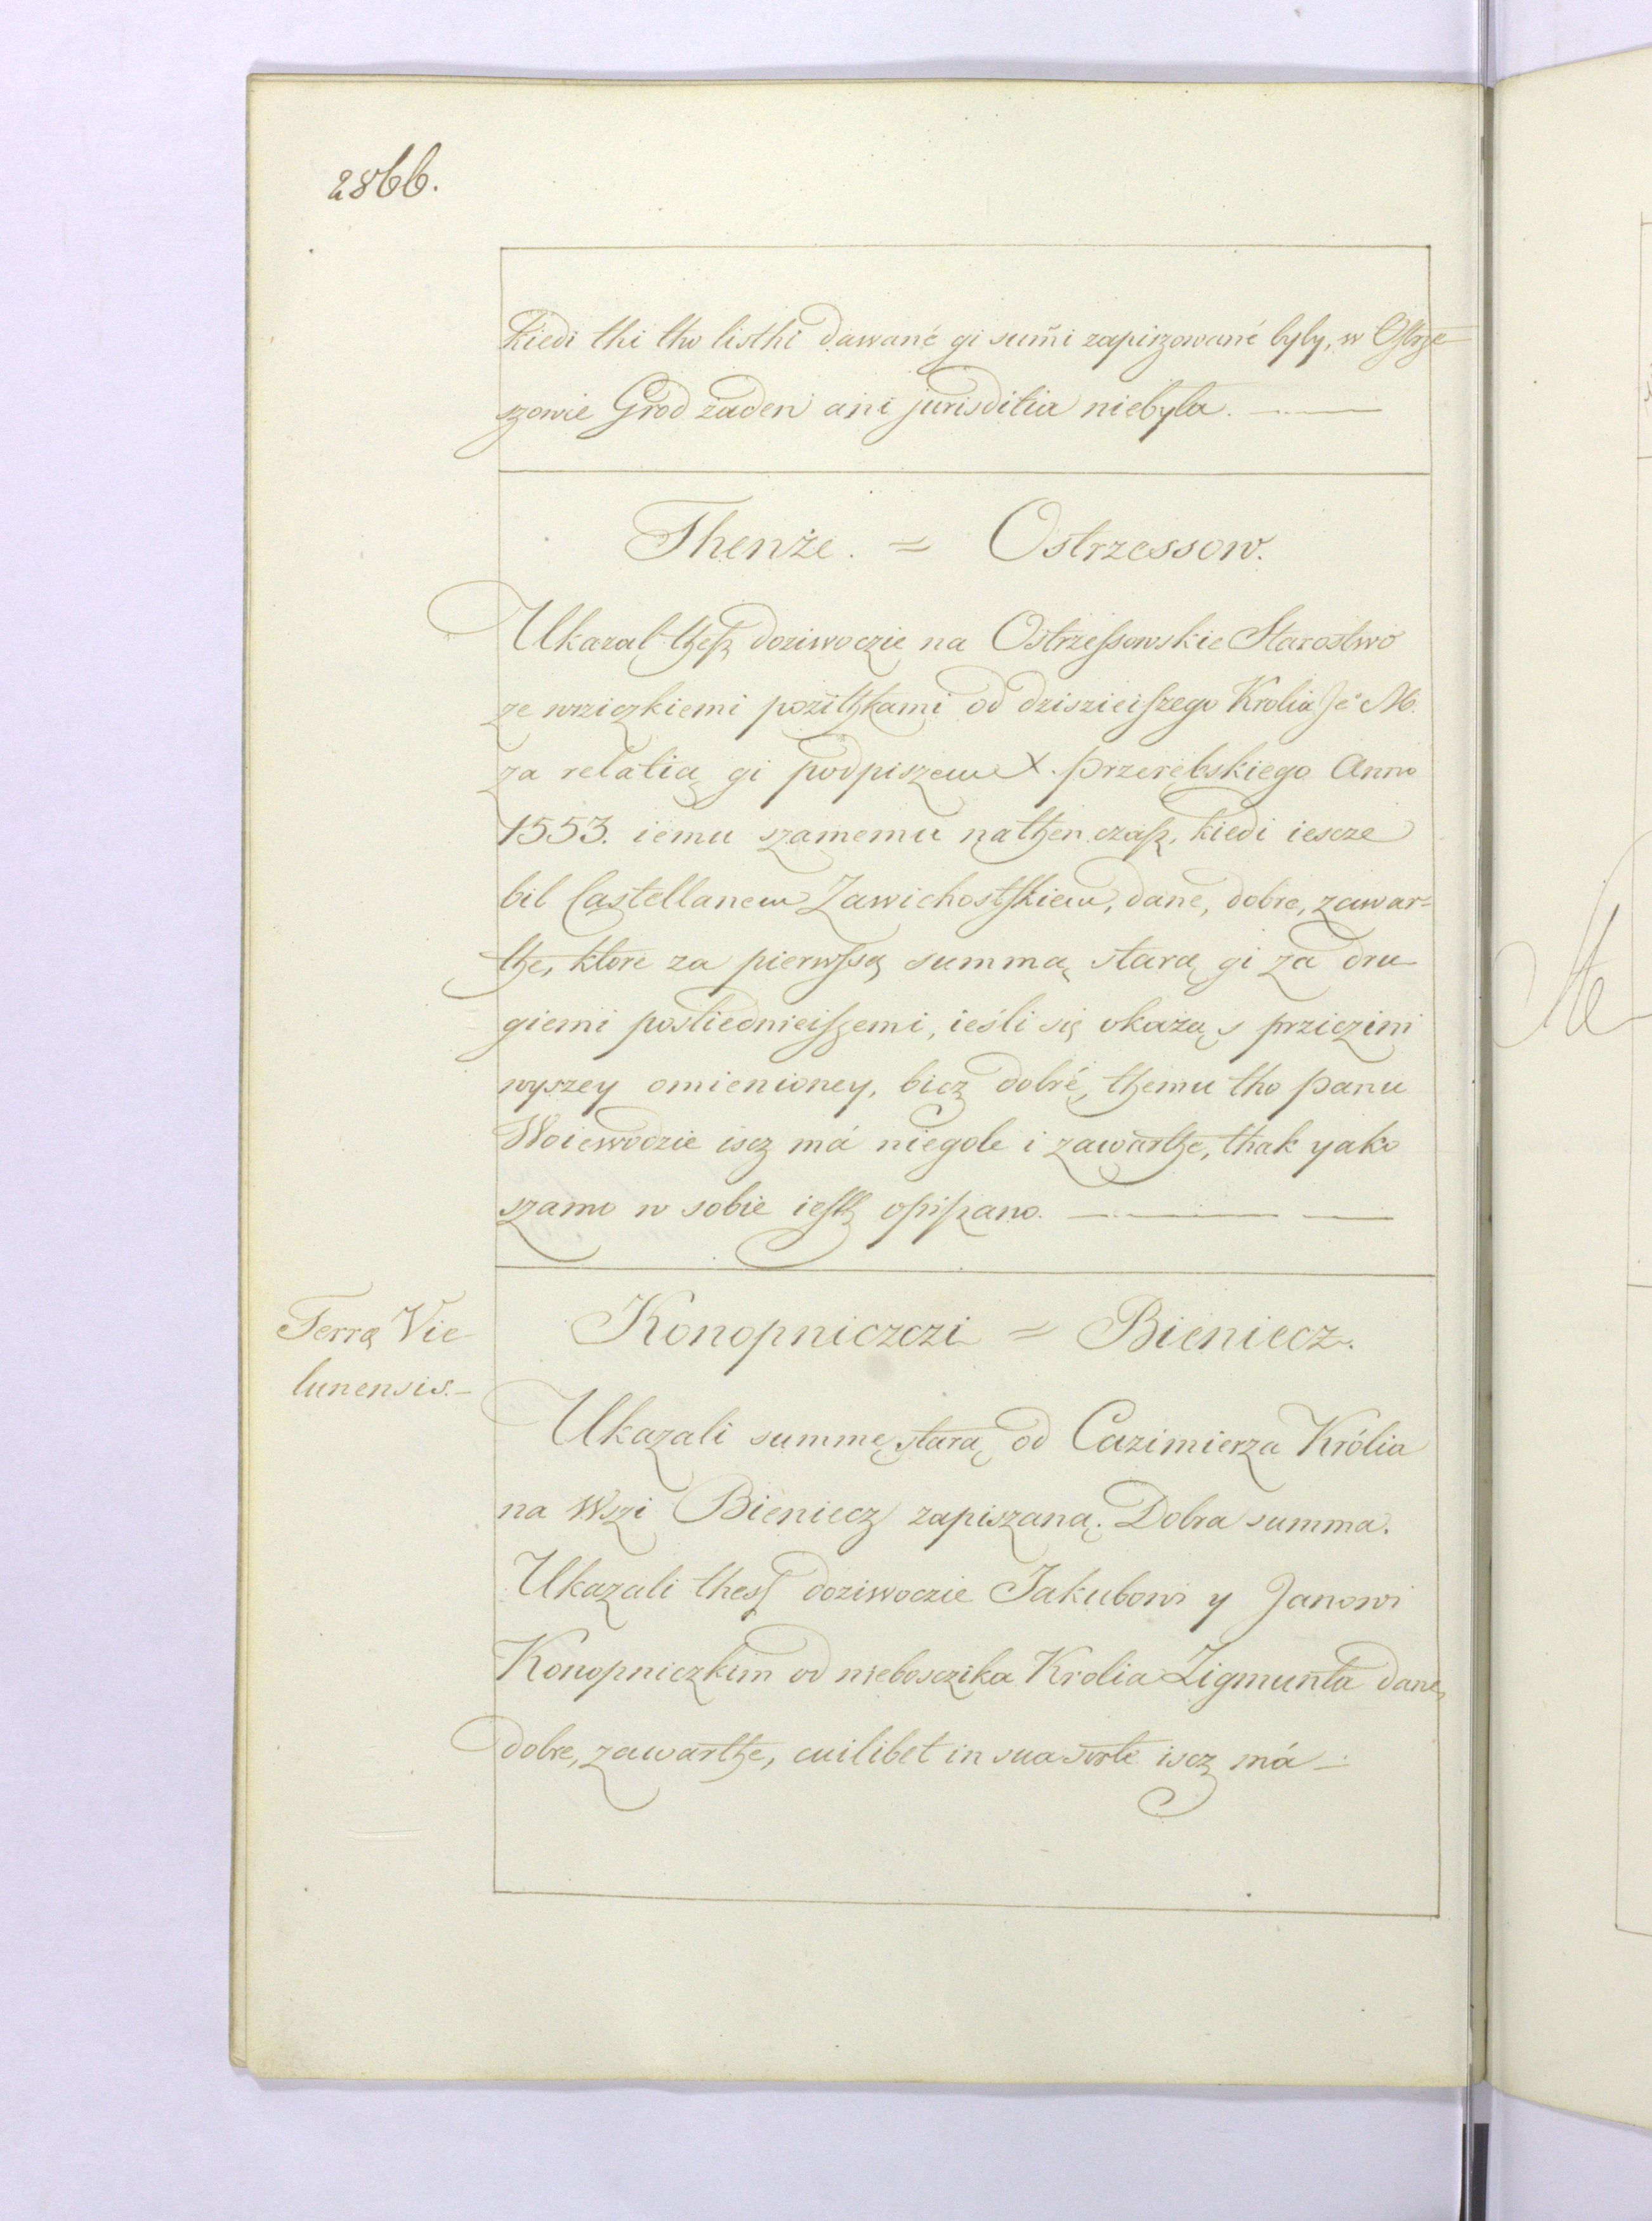 2866.
kiedi thi tho listhi dawané gi sum̃i zapiszowané byly, w Ostrze-
szowie Grod żaden ani jurisditia niebyla.
Thenże. = Ostrzessow.
Ukazal thesz doziwoczie na Ostrzessowskie Starostwo
ze wsziczkiemi pożitkami od dziszieiszego Krolia Je° M.
za relatią gi podpiszem X. Przerębskiego Anno
1553. iemu szamemu nathen czasz, kiedi iescze
bil Castellanem Zawichostskiem, dane, dobre, zawar-
the, ktore za pierwssą summą starą gi za dru-
giemi posliednieiszemi, ieśli się okażą s prziczini
wyszey omienioney, bicz dobré, themu tho Panu
Woiewodzie iscz má niegole i zawarthe, thak yako
szamo w sobie iesth opiszano.
Terrą Vie
lunensis.-
Konopniczczi = Bieniecz.
Ukazali summę starą od Cazimierza Królia
na Wszi Bieniecz zapiszaną. Dobra summa.
Ukazali thess doziwoczie Jakubowi y Janowi
Konopniczkim od nieboszczika Krolia Zigmunta dane,
dobre, zawarthe, cuilibet in sua sorte iscz má.